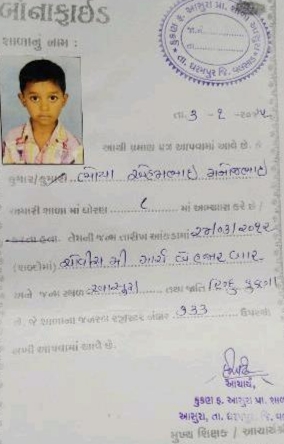 બોનાફાઈડ
શાળાનું નામ :
તા. 3 - ૧ - ૨૦૨૫
આથી પ્રમાણ પત્ર આપવામાં આવે છે. કે
કુમાર/કુમારી
અમારી શાળા માં ધોરણ ૮ માં અભ્યાસ કરે છે /
કરતા હતા. તેમની જન્મ તારીખ આંકડામાં ૨૪/૦૩/૨૦૧૨
(શબ્દોમાં) ચોવીસ મી માર્ચ બે હજાર બાર
અને જન્મ સ્થળ તથા જાતિ હિન્દુ કુકણા
છે. જે શાળાના જનરલ રજીસ્ટર નંબર ૭૩૩ ઉપરથી
લખી આપવામાં આવે છે.
આચાર્ય,
કુકણ ફ. આસુરા પ્રા. શાળા
આસુરા, તા. ધરમપુર જિ.
મુખ્ય શિક્ષક / આચાર્ય